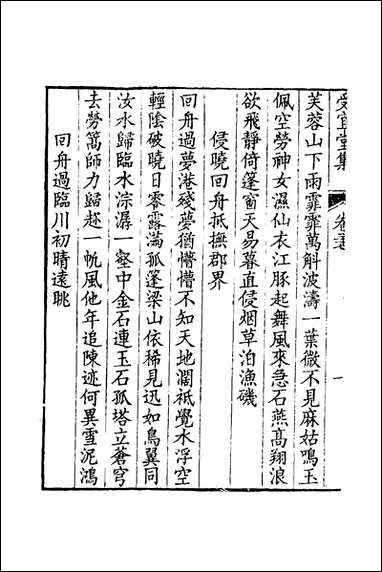 受宜堂集 卷三十五 一
芙蓉山下雨霏霏萬斛波濤一葉微不見麻姑鳴玉
佩空勞神女濕仙衣江豚起舞風來急石燕高翔浪
欲飛靜倚篷窗天易暮直侵烟草泊漁磯
侵曉回舟抵撫郡界
回舟過夢港殘夢猶懵懵不知天地濶祗覺水浮空
輕陰破曉日零露滿孤篷梁山依稀見迅如鳥翼同
汝水歸臨水淙潺一壑中金石連玉石孤塔立蒼穹
去勞篙師力歸趂一帆風他年追陳迹何異雪泥鴻
回舟過臨川初晴遠眺